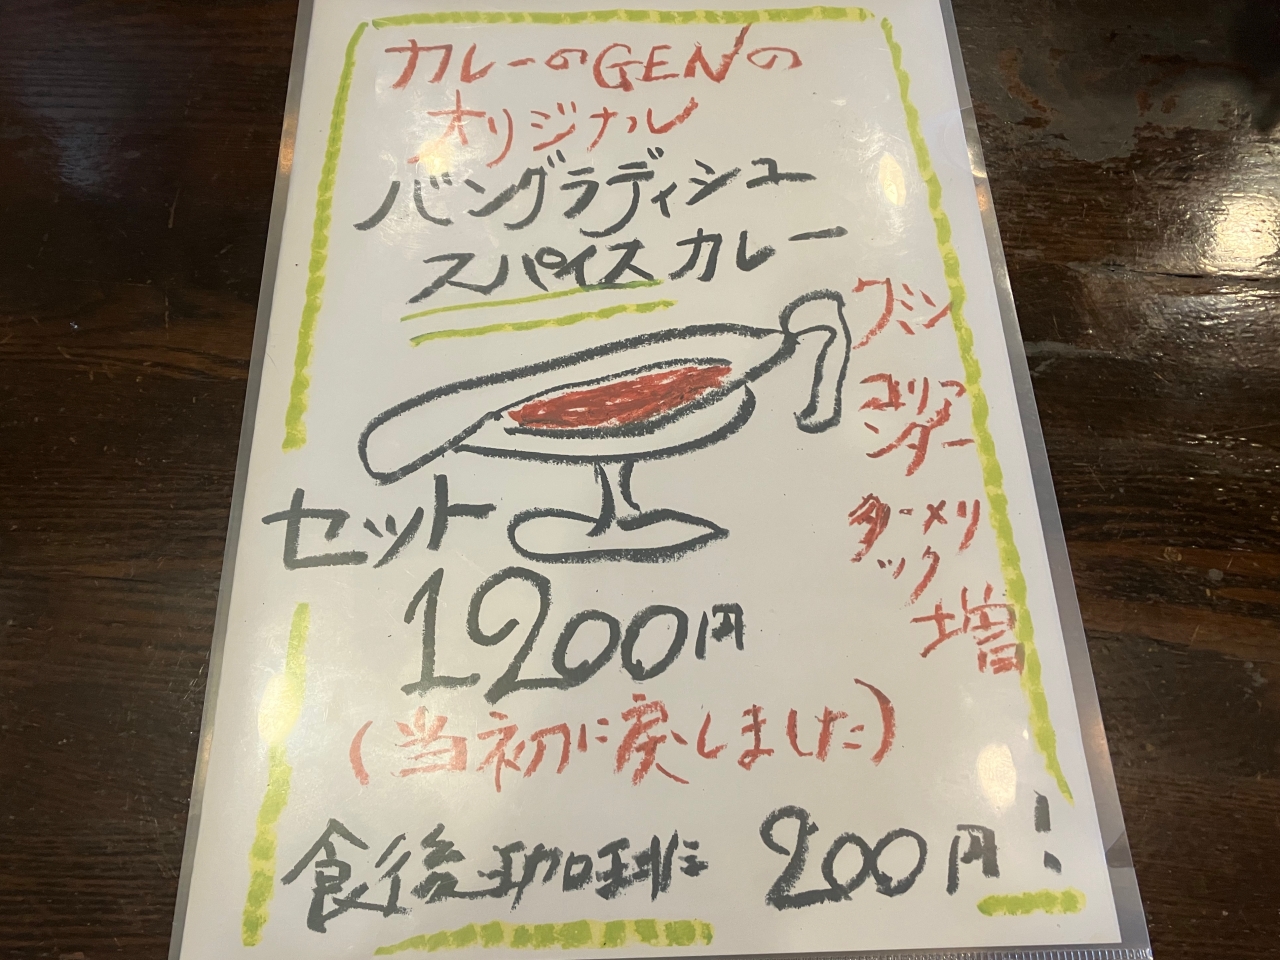 カレーのGENの
オリジナル
バングラディシュ
スパイスカレー
クミン
コリア
ンダー
ターメリ
ック
増
セット
1200円
(当初に戻しました)
食後珈琲 200円!